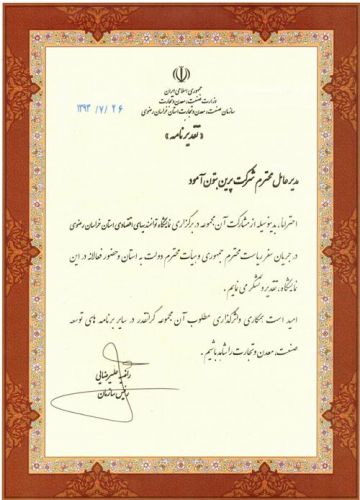 جمهوری اسلامی ایران
وزارت صنعت، معدن و تجارت
سازمان صنعت، معدن و تجارت استان خراسان رضوی
۱۳۹۳ / ۷ / ۲۶
«تقدیرنامه»
مدیرعامل محترم شرکت پرین بتون آمود
احتراما، بدینوسیله از مشارکت آن مجموعه در برگزاری نمایشگاه توانمندیهای اقتصادی استان خراسان رضوی
در جریان سفر ریاست محترم جمهوری و هیات محترم دولت به استان و حضور فعالانه در این
نمایشگاه، تقدیر و تشکر می نمایم.
امید است همکاری و اثرگذاری مطلوب آن مجموعه گرانقدر در سایر برنامه های توسعه
صنعت، معدن و تجارت را شاهد باشیم.
راضیه علیرضایی
رئیس سازمان